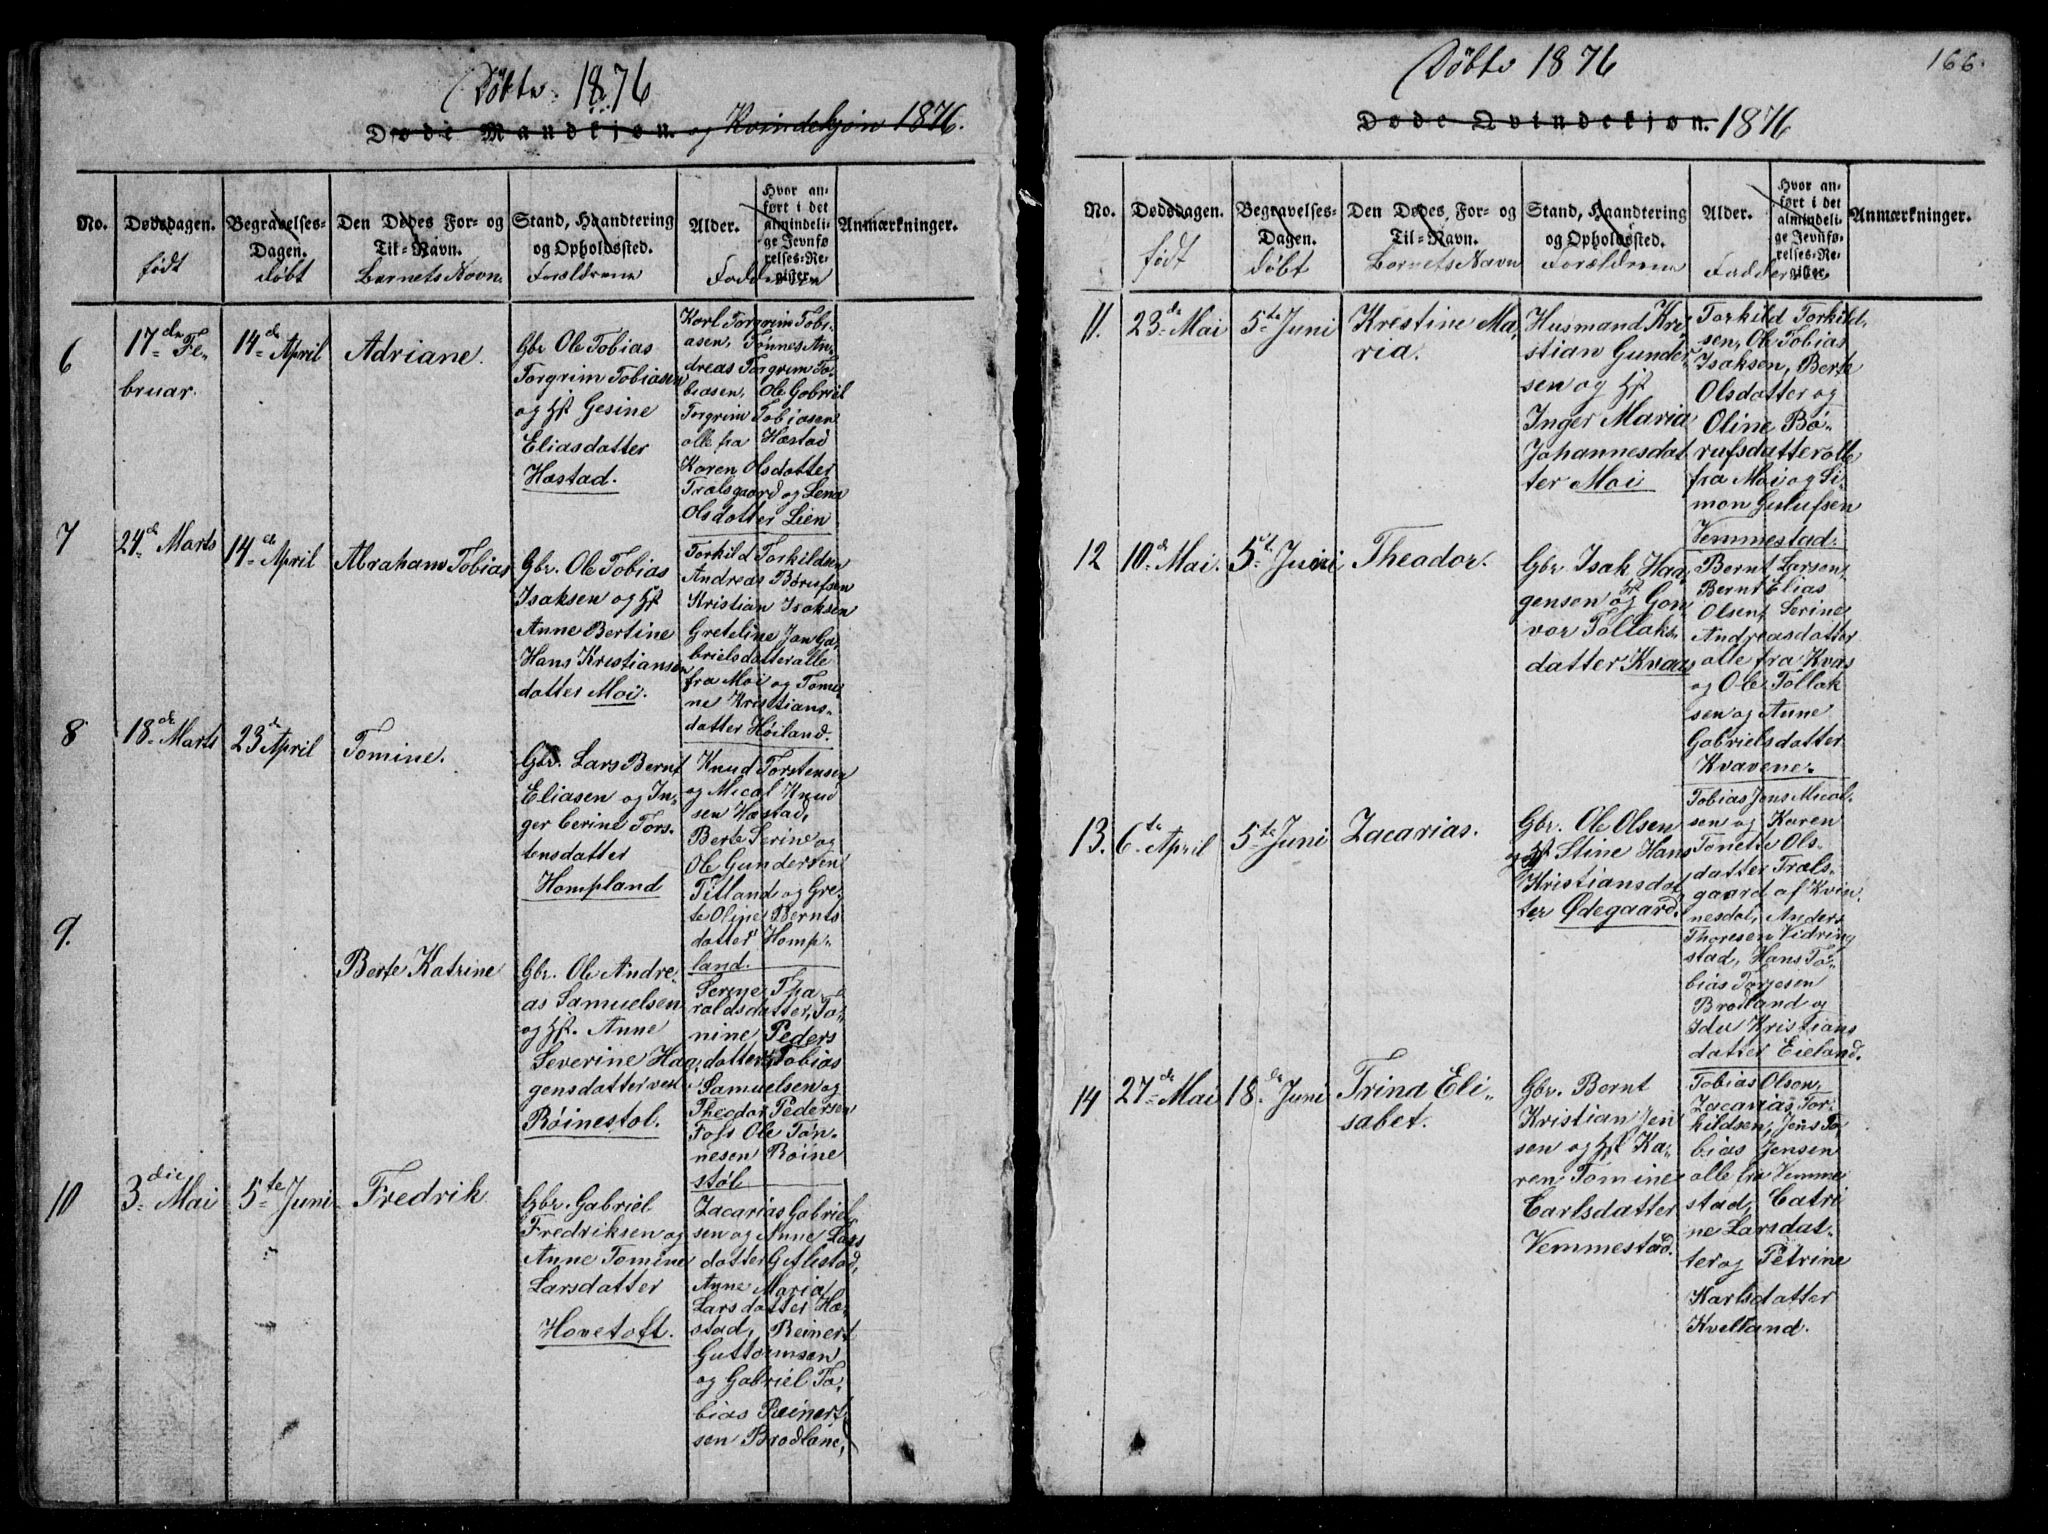 Døbte 1876
Døde Mandkjøn. og Kvindekjøn 1876.
No.
Dødsdagen.
født
Begravelses-
Dagen.
døbt
Den Dødes For- og
Til-Navn.
Barnets Navn.
Stand, Haandtering
og Opholdssted.
Forældrene
Alder.
Hvor an-
ført i det
almindeli-
ge Jevnfø
relses-Re-
gister.
Fadderne
Anmærkninger.
6
17de Fe-
bruar.
14de April
Adriane.
Gbr. Ole Tobias
Torgrim Tobiasen
og Hst Gesine
Eliasdatter
Hæstad.
Karl Torgrim Tobi-
asen, Tønnes An-
dreas Torgrim To-
biasen, Ole Gabriel
Torgrim Tobiasen
alle fra Hæstad
Karen Olsdatter
Trælsgaard og Lena
Olsdatter Lien
7
24de Marts
14de April
Abraham Tobias
Gbr. Ole Tobias
Isaksen og Hst
Anne Bertine
Hans Kristiansen
datter Moi.
Torkild Torkildsen
Andreas Børufsen
Kristian Isaksen
Greteline Jan Ga-
brielsdatter alle
fra Moi og Tomi-
ne Kristians-
datter Høiland.
8
18de Marts
23de April
Tomine.
Gbr. Lars Bernt
Eliasen og In-
ger Cerine Tors-
tensdatter
Hompland
Knud Torstensen
og Mical Knud
sen Hæstad,
Berte Serine og
Ole Gundersen
Titland og Gre-
te Oline Bernts
datter Homp-
land.
9.
Berte Katrine
Gbr. Ole Andre-
as Samuelsen
og Hst. Anne
Severine Haa-
gensdatter vest-
Røinestøl.
Serine Tha-
raldsdatter, To-
nine Peders
datter, Tobias
Samuelsen og
Theodor Pedersen
Foss Ole Tøn-
nesen Røine
støl
10
3die Mai
5te Juni
Fredrik.
Gbr. Gabriel
Fredriksen og
Anne Tomine
Larsdatter
Hovetoft.
Zacarias Gabriel-
sen og Anne Lars
datter Gitlestad,
Anne Maria
Larsdatter Hæ-
stad, Reinert
Guttormsen
og Gabriel To-
bias Reinert-
sen Brødlane,
Døbte 1876
166.
Døde Qvindekjøn. 1876
No.
Dødsdagen.
født
Begravelses-
Dagen.
døbt
Den Dødes, For- og
Til-Navn.
Barnets Navn
Stand, Haandtering
og Opholdssted.
Forældrene
Alder.
Hvor an-
ført i det
almindeli-
ge Jevnfø-
relses-Re-
gister.
Fadderne
Anmærkninger.
11.
23de Mai
5te Juni
Krestine Ma-
ria.
Husmand Kri-
stian Gunder-
sen og Hst
Inger Maria
Johannesdat
ter Moi
Torkild Torkild-
sen, Ole Tobias
Isaksen, Berte
Olsdatter og
Oline Bø-
rufsdatter alle
fra Moi og Si-
mon Gulufsen
Vemmestad.
12
10de Mai.
5te Juni
Theodor.
Gbr. Isak Haa-
gensen og Hst Gon
vor Tollaks-
datter Kvaas
Bernt Larsen,
Bernt Elias
Olsen, Serine
Andreasdatter
alle fra Kvas
og Ole Tollak
sen og Anne
Gabrielsdatter
Kvavene-
13.
6te April
5te Juni
Zacarias.
Gbr. Ole Olsen
og Hst Stine Hans
Kristiansdat-
ter Ødegaard.
Tobias Jens Mical-
sen og Karen
Tonette Ols-
datter Træls-
gaard af Kvin
nesdal, Anders
Thoresen Vidring
stad, Hans To-
bias Torjesen
Brødland og
Ida Kristians
datter Eieland.
14
27de Mai
18de Juni
Trina Eli-
sabet.
Gbr. Bernt
Kristian Jen
sen og Hst Ka-
ren Tomine
Carlsdatter
Vemmestad.
Tobias Olsen,
Zacarias Tor-
kildsen, Jens To-
bias Jensen
alle fra Vemme
stad, Catri
ne Larsdat-
ter og Petrine
Karlsdatter
Kvelland.